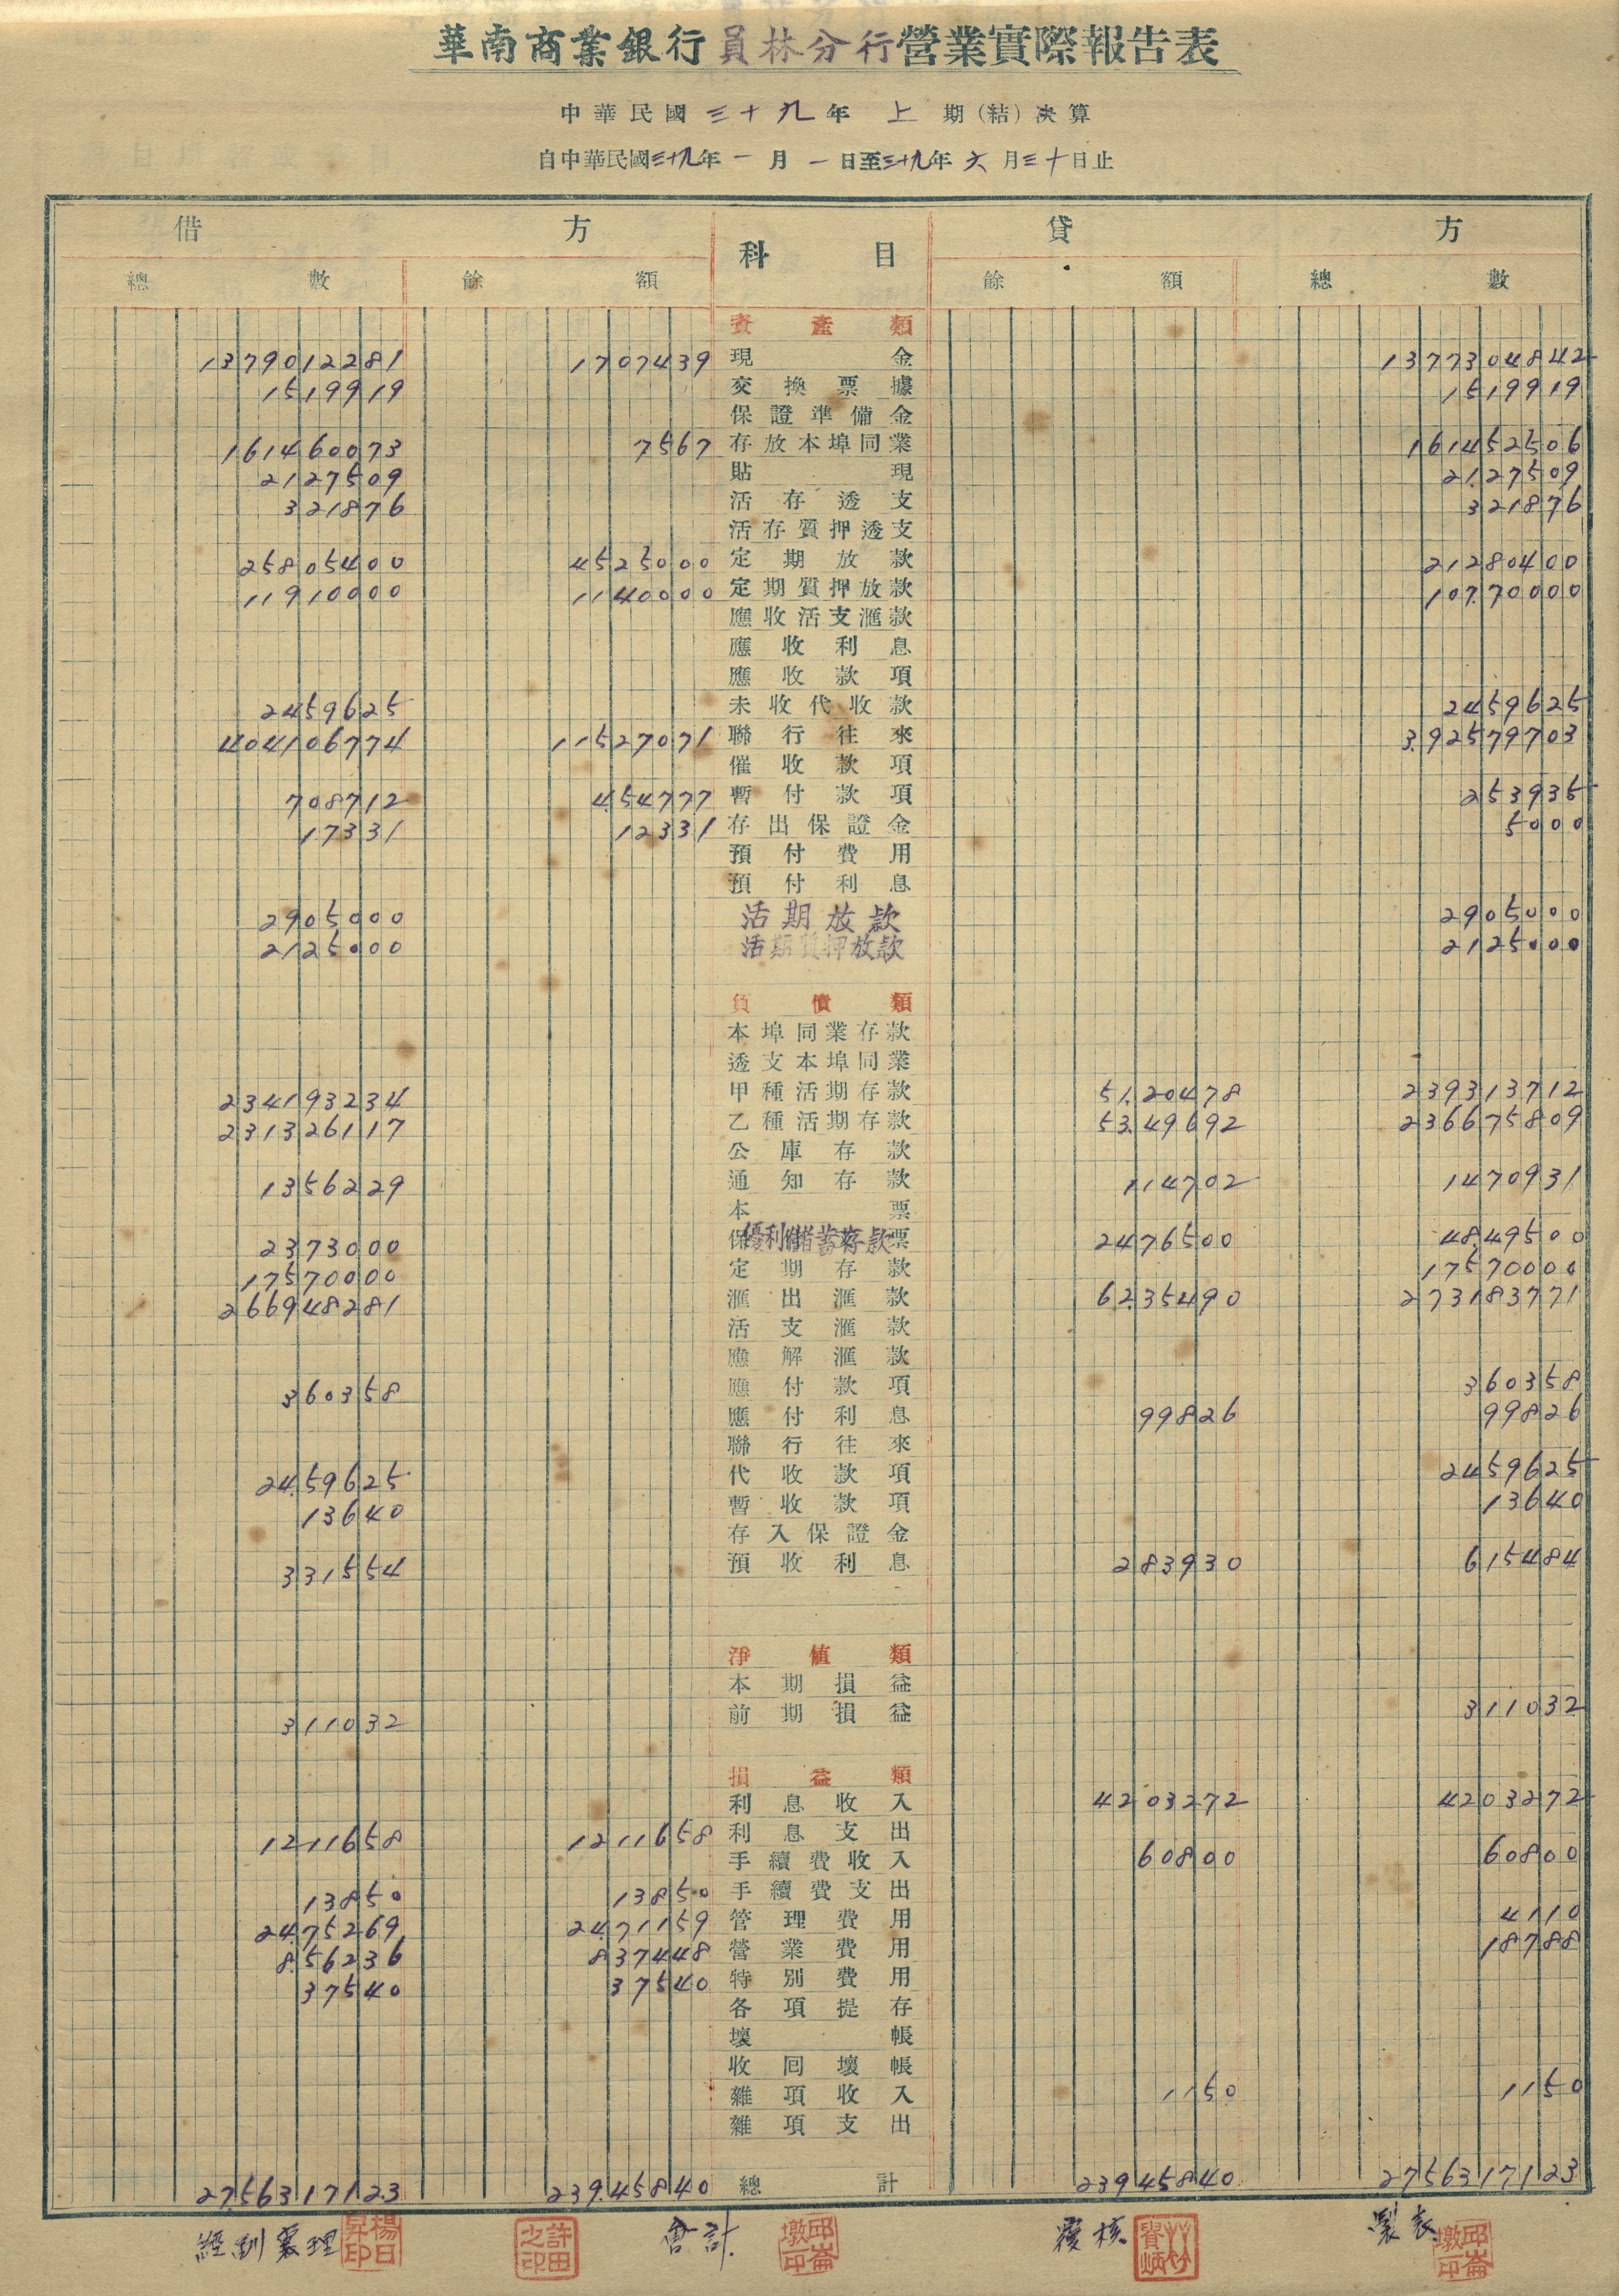 華南商業銀行員林分行營業實際報告表
中華民國三十九年上期(結)決算
自中華民國三十九年一月一日至三十九年六月三十日止
借方 科目 貸方
總數 餘額 餘額 總數
資產類
1379012281 1707439 現金 1377304842
1519919 交換票據 1519919
保證準備金
161460073 7567 存放本埠同業 161452506
2127509 貼現 2127509
321876 活存透支 321876
活存質押透支
25805400 4525000 定期放款 21280400
11910000 1140000 定期質押放款 10770000
應收活支滙款
應收利息
應收款項
2459625 未收代收款 2459625
404106774 11527071 聯行往來 392579703
催收款項
708712 454777 暫付款項 253935
17331 12331 存出保證金 5000
預付費用
預付利息
2905000 活期放款 2905000
2125000 活期質押放款 2125000
負債類
本埠同業存款
透支本埠同業
234193234 甲種活期存款 5120478 239313712
231326117 乙種活期存款 5349692 236675809
公庫存款
1356229 通知存款 114702 1470931
本票
2373000 優利儲蓄存款 2476500 4849500
17570000 定期存款 17570000
266948281 滙出滙款 6235490 273183771
活支滙款
應解滙款
360358 應付款項 360358
應付利息 99826 99826
聯行往來
2459625 代收款項 2459625
13640 暫收款項 13640
存入保證金
331554 預收利息 283930 615484
淨值類
本期損益
311032 前期損益 311032
損益類
利息收入 4203272 4203272
1211658 1211658 利息支出
手續費收入 60800 60800
13850 13850 手續費支出
2475269 2471159 管理費用 4110
856236 837448 營業費用 18788
37540 37540 特別費用
各項提存
壞帳
收回壞帳
雜項收入 1150 1150
雜項支出
2756317123 23945840 總計 23945840 2756317123
經副襄理 楊日昇印 許田之印 會計 邱崙墩印 覆核 製表 邱崙墩印